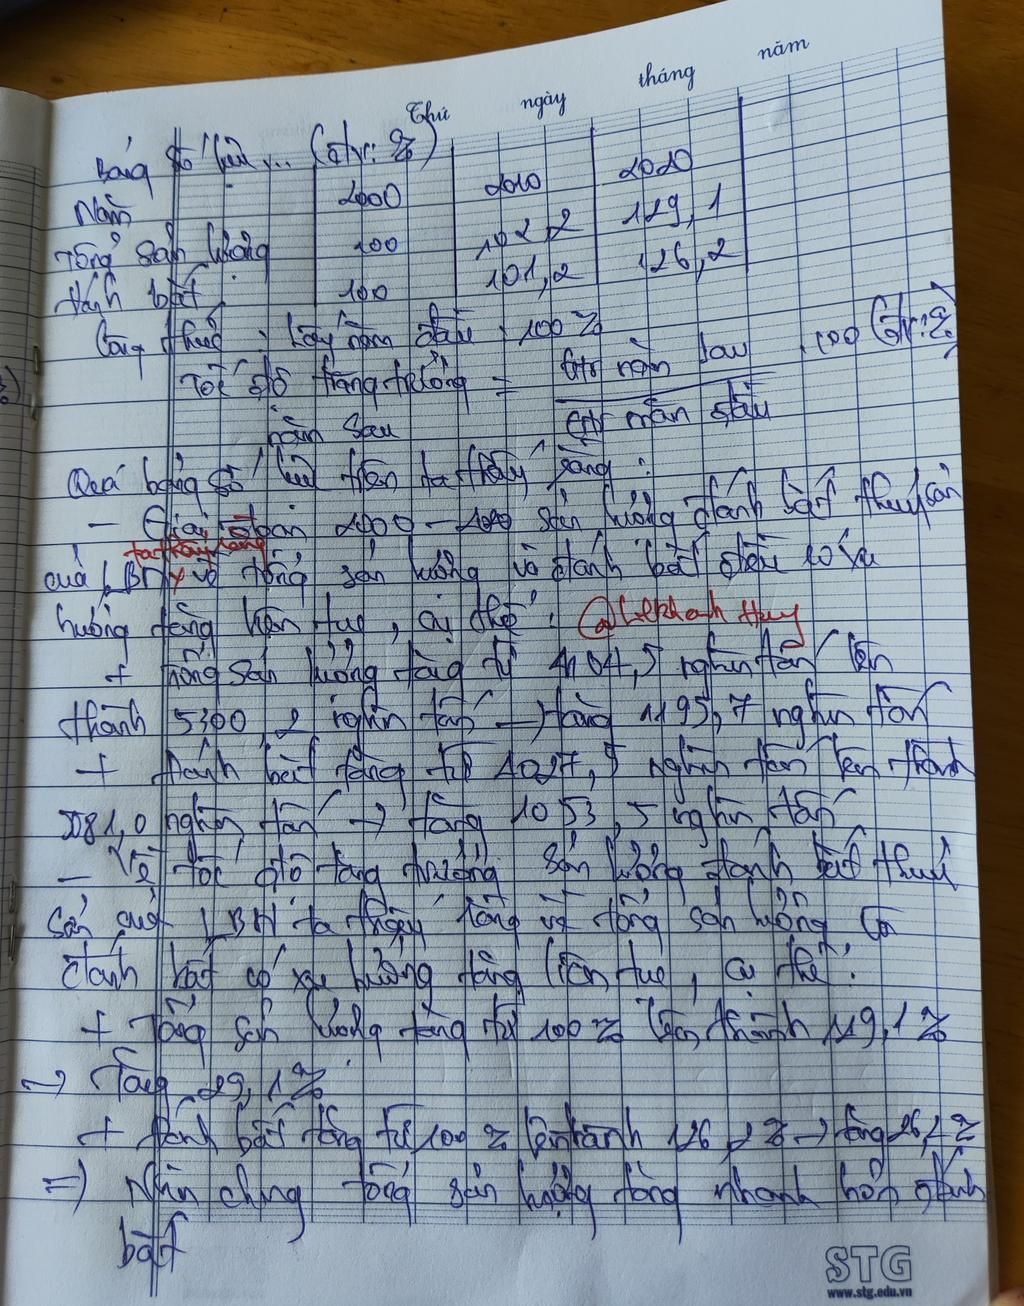 Thứ ngày tháng năm
Bảng số liệu... (đv: %)
Năm 2000 2010 2020
Tổng sản lượng 100 102,2 129,1
đánh bắt 100 101,2 126,2
Công thức: Lấy năm đầu: 100%
Tốc độ tăng trưởng = Gtr năm sau . 100 (đv: %)
năm sau Gtr năm đầu
Quá bảng số liệu trên ta thấy rằng:
- Giai đoạn 2000 - 2020 sản lượng đánh bắt thuỷ sản
ta thấy rằng
của LBN về tổng sản lượng và đánh bắt đều có xu
hướng tăng liên tục, cụ thể: @Lekhanh Huy
+ Tổng sản lượng tăng từ 4104,5 nghìn tấn lên
thành 5300,2 nghìn tấn → tăng 1195,7 nghìn tấn
+ đánh bắt tăng từ 4027,5 nghìn tấn lên thành
5081,0 nghìn tấn → tăng 1053,5 nghìn tấn
- Về tốc độ tăng trưởng sản lượng đánh bắt thuỷ
sản của LBN ta thấy rằng về tổng sản lượng và
đánh bắt có xu hướng tăng liên tục, cụ thể:
+ Tổng sản lượng tăng từ 100% lên thành 119,1%
→ Tăng 29,1%
+ đánh bắt tăng từ 100% lên thành 126,2% → tăng 26,2%
=> Nhìn chung tổng sản lượng tăng nhanh hơn đánh
bắt
STG
www.stg.edu.vn